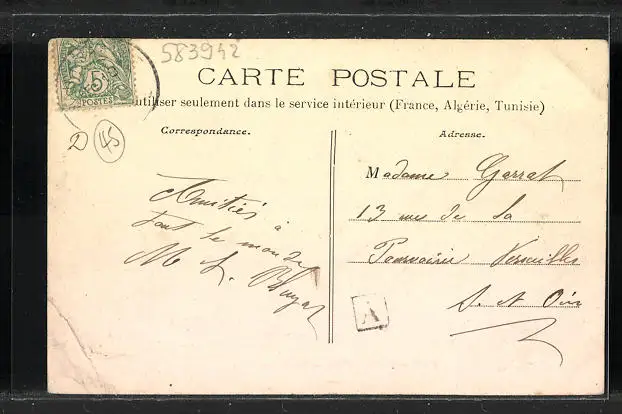 583942
5c
POSTES
CARTE POSTALE
utiliser seulement dans le service intérieur (France, Algérie, Tunisie)
D 45
Correspondance.
Amitiés à
tout le monde
M L.
Adresse.
Madame Garrat
13 rue de la
Versailles
S. et Oise
A